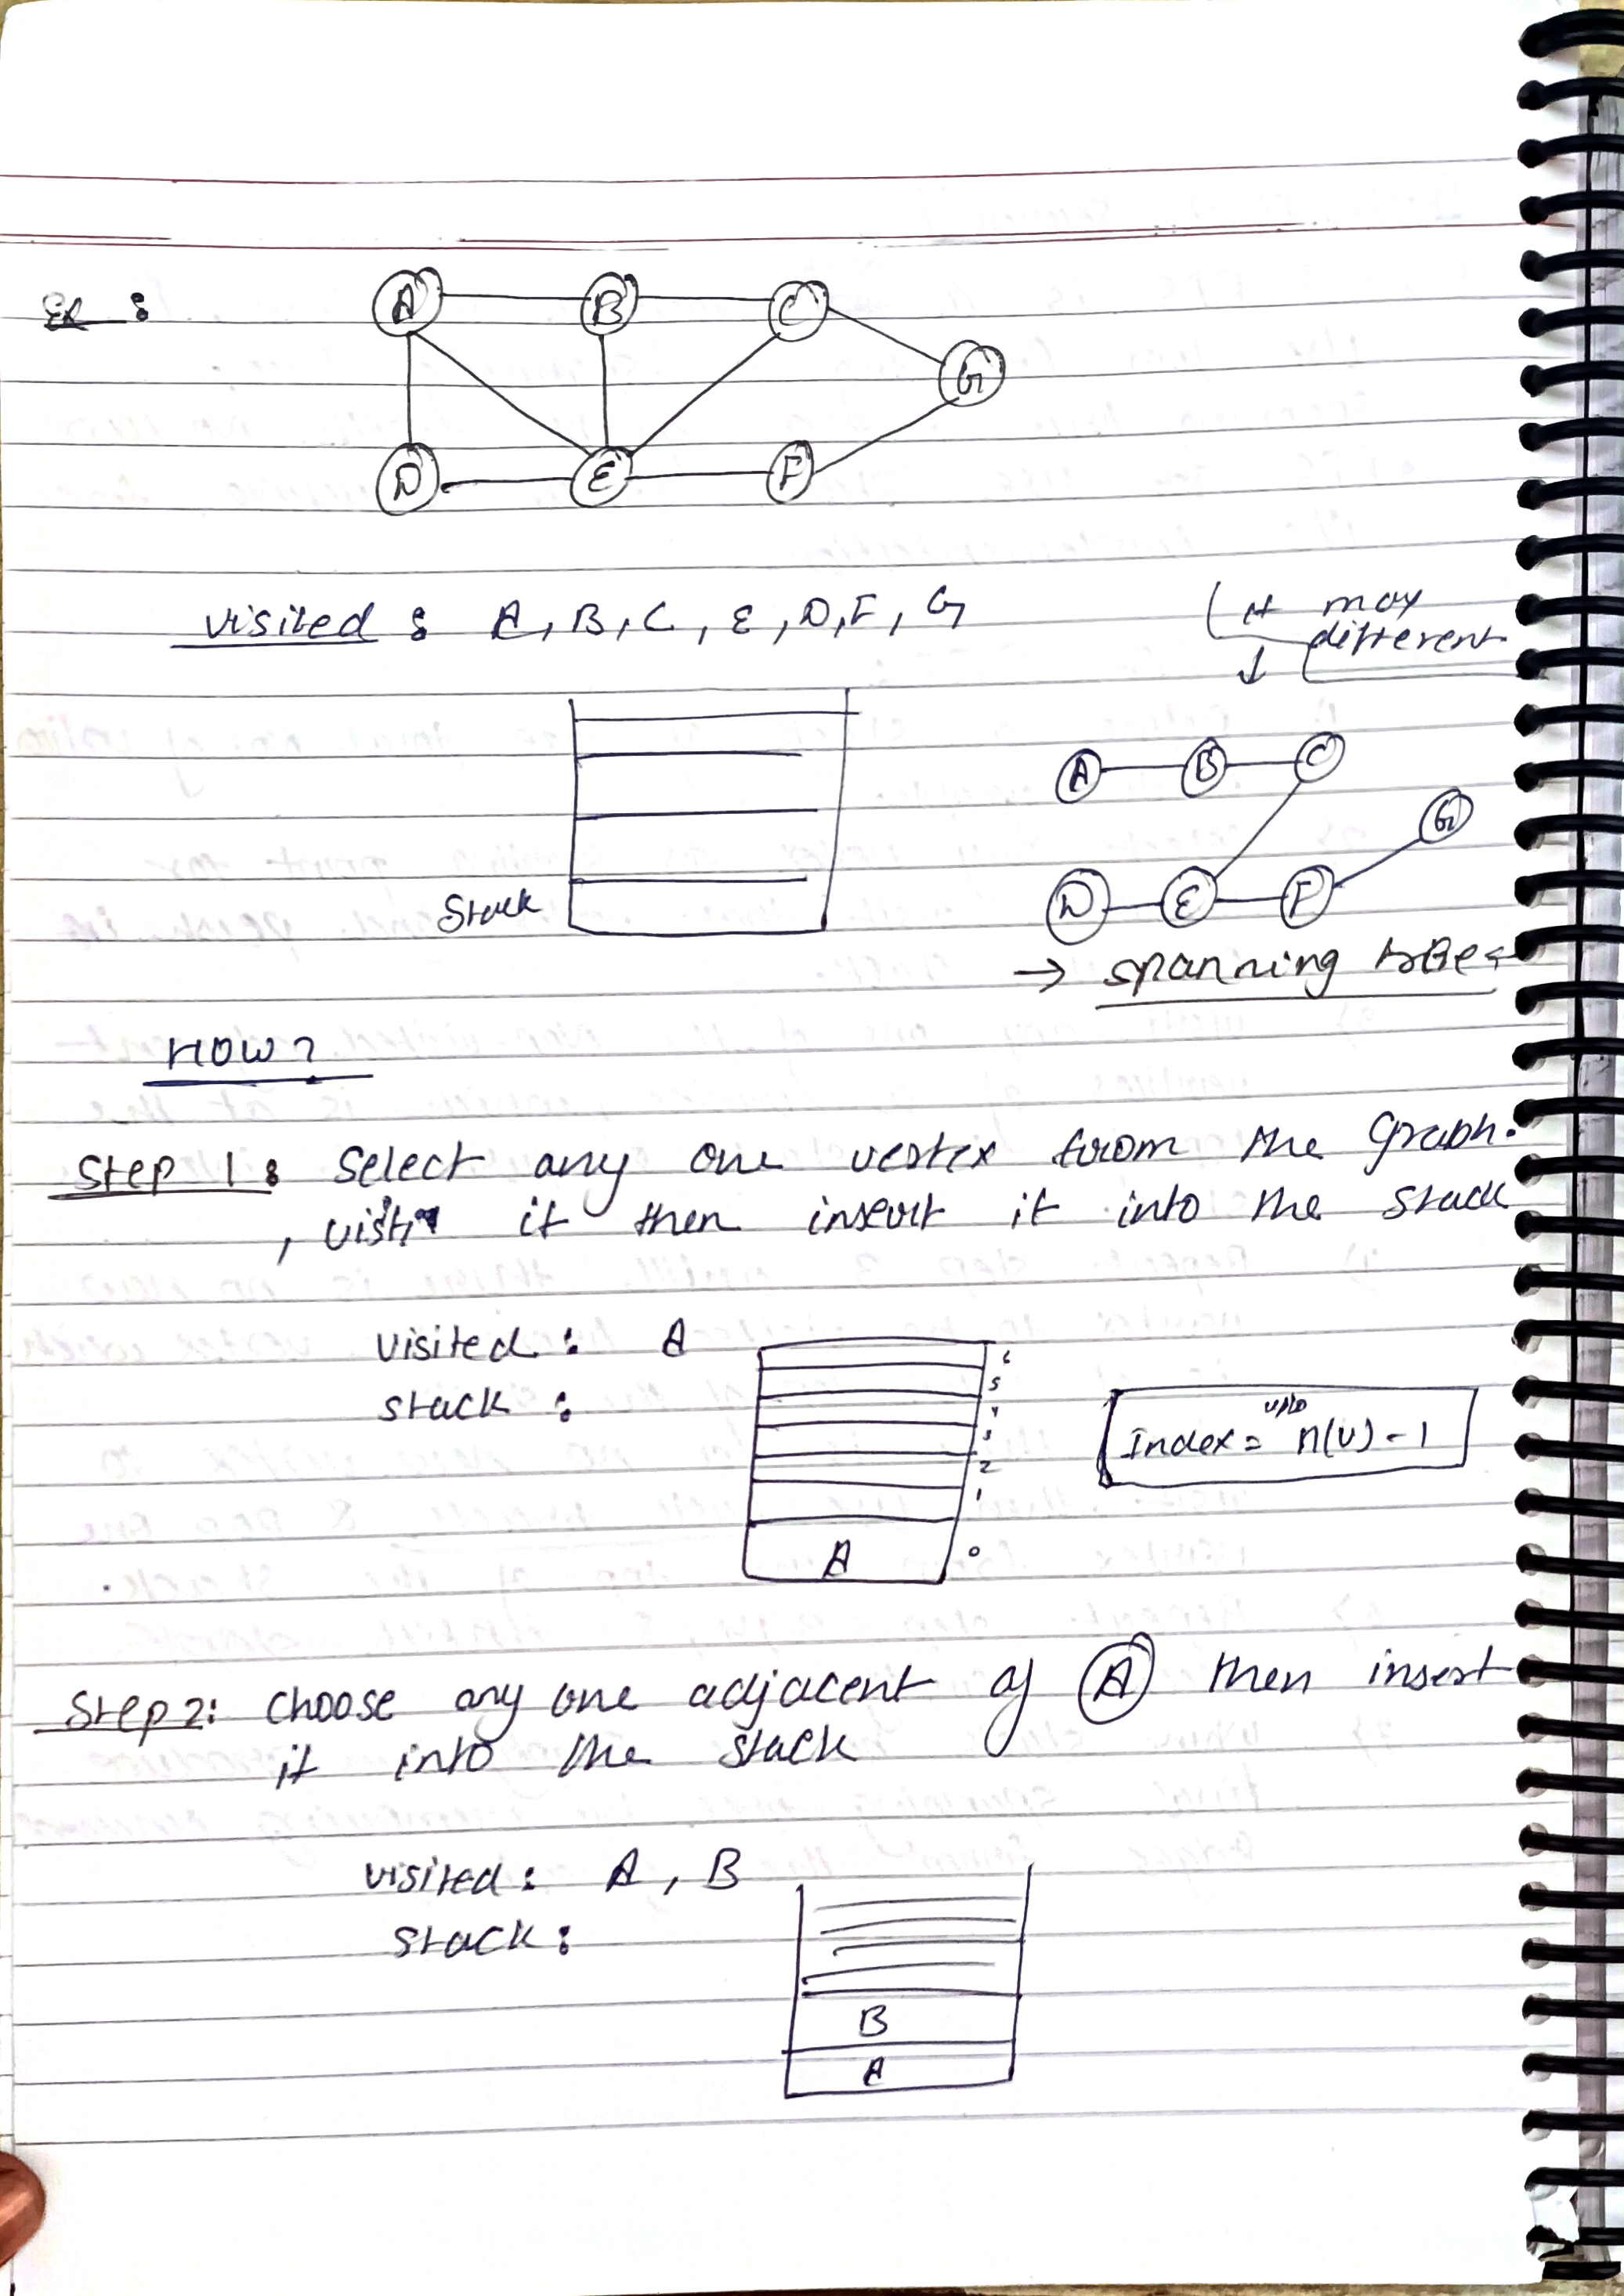 Ex :
A B C
G
D E F
visited : A, B, C, E, D, F, G
it may
different
A B C
G
D E F
Stack
→ spanning tree
HOW?
Step 1: Select any one vertex from the Graph.
, visit it then insert it into the stack
visited : A
stack :
6
5
4
3
2
1
A 0
upto
Index = n(V) - 1
Step 2: choose any one adjacent of A then insert
it into the stack
visited : A, B
stack :
B
A